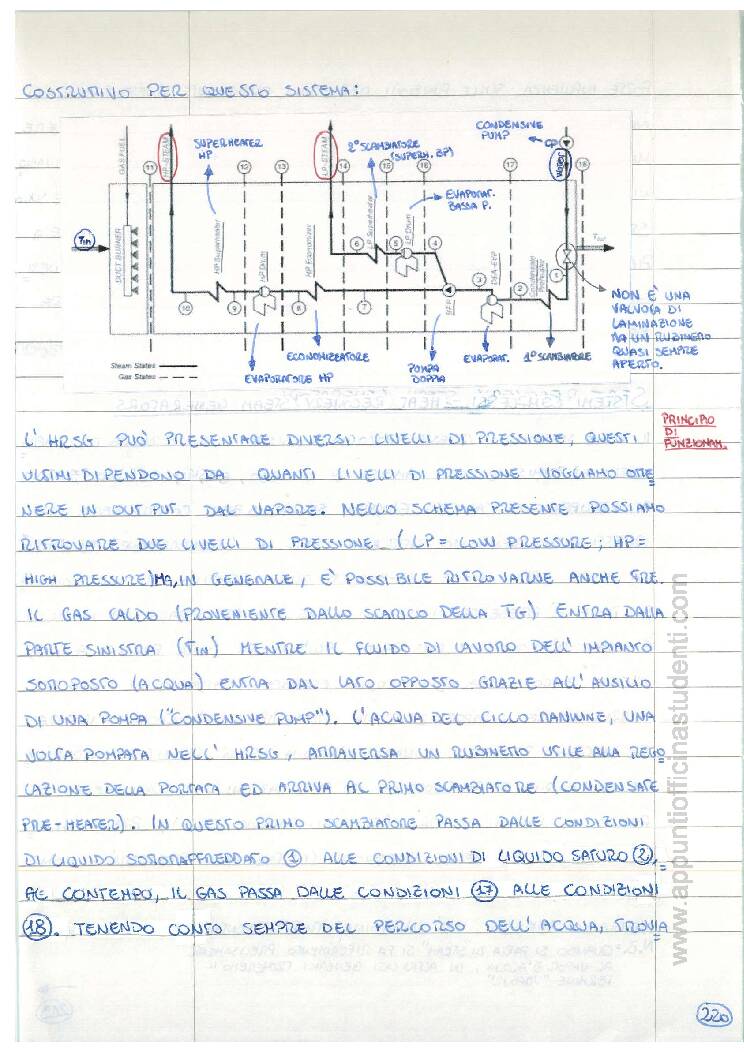 COSTRUTTIVO PER QUESTO SISTEMA:
GAS FUEL
DUCT BURNER
Tin
11
HP-STEAM
SUPERHEATER
HP
12
13
LP-STEAM
14
2° SCAMBIATORE
(SUPERH. BP)
15
16
EVAPORAT.
BASSA P.
CONDENSIVE
PUMP
CP
Water
17
18
Tout
HP Superheater
HP Drum
HP Economizer
LP Superheater
LP Drum
DEA-EVP
Condensate
Preheater
BFP
10
9
8
7
6
5
4
3
2
1
NON È UNA
VALVOLA DI
LAMINAZIONE
MA UN RUBINETTO
QUASI SEMPRE
APERTO.
Steam States
Gas States
EVAPORATORE HP
ECONOMIZZATORE
POMPA
DOPPIA
EVAPORAT.
1° SCAMBIATORE
PRINCIPIO
DI
FUNZIONAM.
L'HRSG PUÒ PRESENTARE DIVERSI LIVELLI DI PRESSIONE, QUESTI
ULTIMI DIPENDONO DA QUANTI LIVELLI DI PRESSIONE VOGLIAMO OTTE
NERE IN OUT PUT DAL VAPORE. NELLO SCHEMA PRESENTE POSSIAMO
RITROVARE DUE LIVELLI DI PRESSIONE (LP = LOW PRESSURE; HP =
HIGH PRESSURE) MA, IN GENERALE, È POSSIBILE RITROVARNE ANCHE TRE.
IL GAS CALDO (PROVENIENTE DALLO SCARICO DELLA TG) ENTRA DALLA
PARTE SINISTRA (TIN) MENTRE IL FLUIDO DI LAVORO DELL'IMPIANTO
SOTTOPOSTO (ACQUA) ENTRA DAL LATO OPPOSTO GRAZIE ALL'AUSILIO
DI UNA POMPA ("CONDENSIVE PUMP"). L'ACQUA DEL CICLO RANKINE, UNA
VOLTA POMPATA NELL'HRSG, ATTRAVERSA UN RUBINETTO UTILE ALLA REGO
LAZIONE DELLA PORTATA ED ARRIVA AL PRIMO SCAMBIATORE (CONDENSATE
PRE-HEATER). IN QUESTO PRIMO SCAMBIATORE PASSA DALLE CONDIZIONI
DI LIQUIDO SOTTORAFFREDDATO 1 ALLE CONDIZIONI DI LIQUIDO SATURO 2,
AL CONTEMPO, IL GAS PASSA DALLE CONDIZIONI 17 ALLE CONDIZIONI
18. TENENDO CONTO SEMPRE DEL PERCORSO DELL'ACQUA, TROVIA
www.appuntiofficinastudenti.com
220